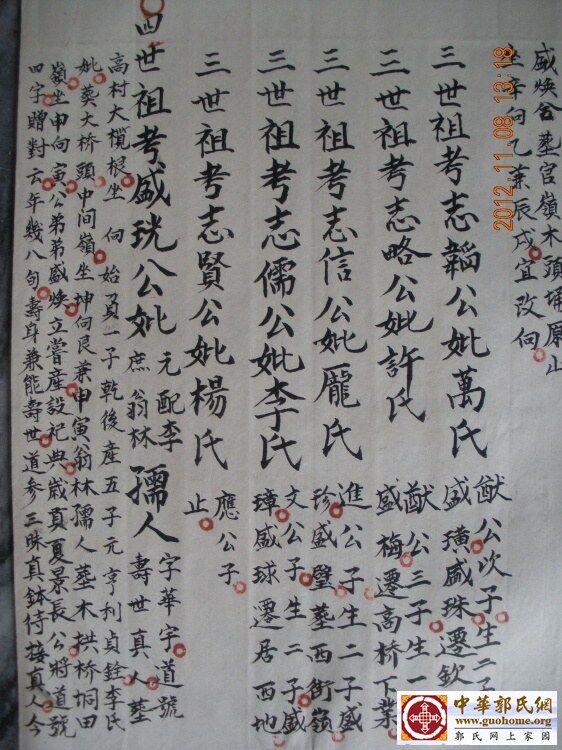 盛煥公葬官嶺木頭埔原山
坐辛向乙兼辰戌宜改向
三世祖考志韜公妣萬氏
猷公次子生二子
盛璜盛珠遷欽
三世祖考志略公妣許氏
猷公三子生一
盛梅遷高橋下業
三世祖考志信公妣龐氏
進公子生二子盛
珍盛璧葬西街嶺
三世祖考志儒公妣李氏
文公子生二子盛
璋盛球遷居西地
三世祖考志賢公妣楊氏
應公子
止
四世祖考盛珖公妣元配李庶翁林孺人
字華宇道號
壽世真人葬
高村大欖根坐 向始育一子乾後產五子元亨利貞銓李氏
妣葬大桥頭中間嶺坐坤向艮兼申寅翁林孺人葬木拱桥垌田
嶺坐申向寅公弟弟盛煥立嘗產設祀典歲頁夏景長公將道號
四字贈對云年幾八旬壽身兼能壽世道参三昧真缽侍接真人今
2012.11.08 13:18
中華郭氏網
www.guohome.org
郭氏网上家园